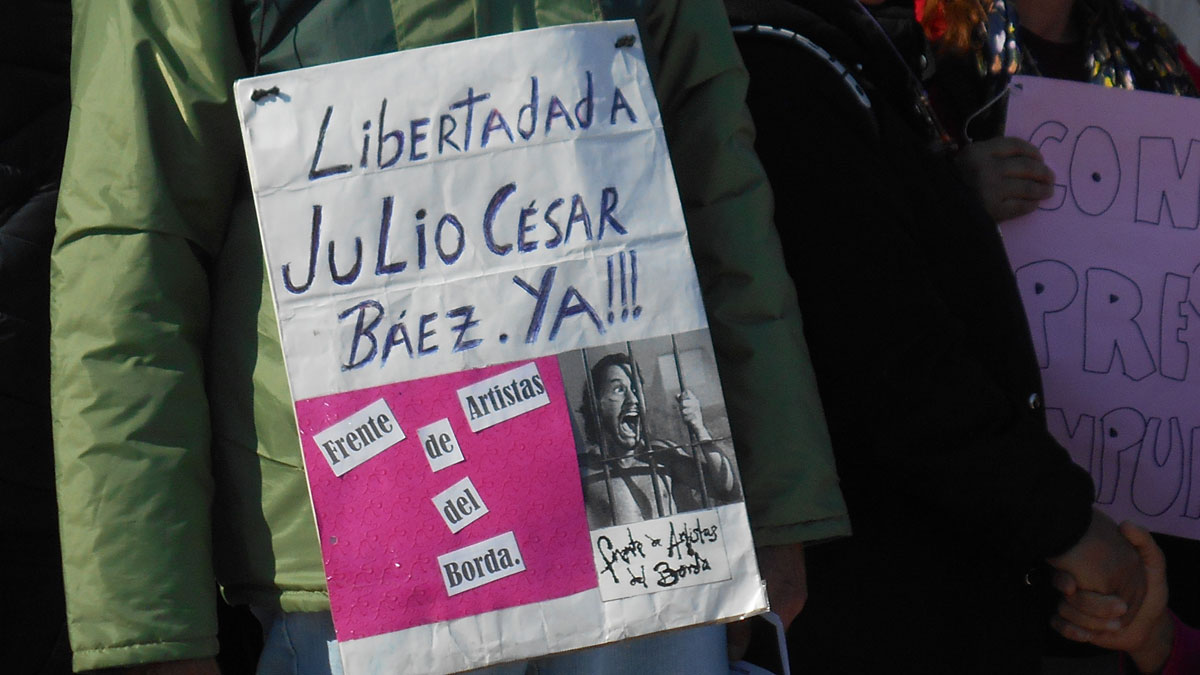 LibERTAdAdA
JULIO CÉSAR
BÁEZ. YA!!!
Frente
de
Artistas
del
Borda.
frente de Artistas
del Borda
CON
PRE
MPU